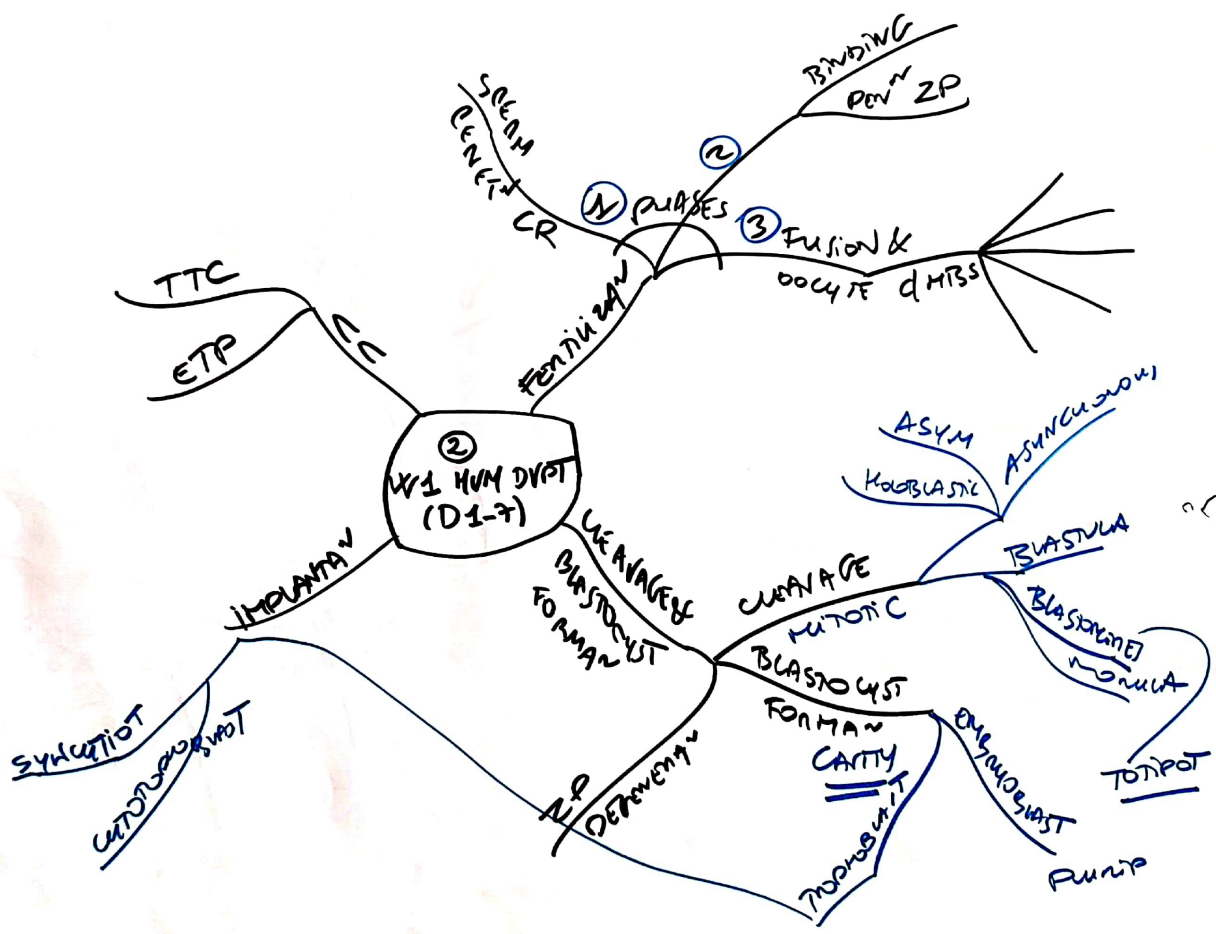 ②
W1 HUM DVPT
(D1-7)
FERTILIZAᴺ
PHASES
①
SPERM
PENETᴺ
CR
②
BINDING
PENᴺ ZP
③ FUSION &
OOCYTE
CLEAVAGE &
BLASTOCYST
FORMAᴺ
CLEAVAGE
MITOTIC
ASYM
HOLOBLASTIC
ASYNCHRONOUS
BLASTULA
BLASTOMERES
MORULA
TOTIPOT
BLASTOCYST
FORMAᴺ
CAVITY
EMBRYOBLAST
PLURIP
TROPHOBLAST
ZP
DEGENERAᴺ
IMPLANTAᴺ
SYNCYTIOT
CYTOTOPHOBLAST
CC
TTC
ETP